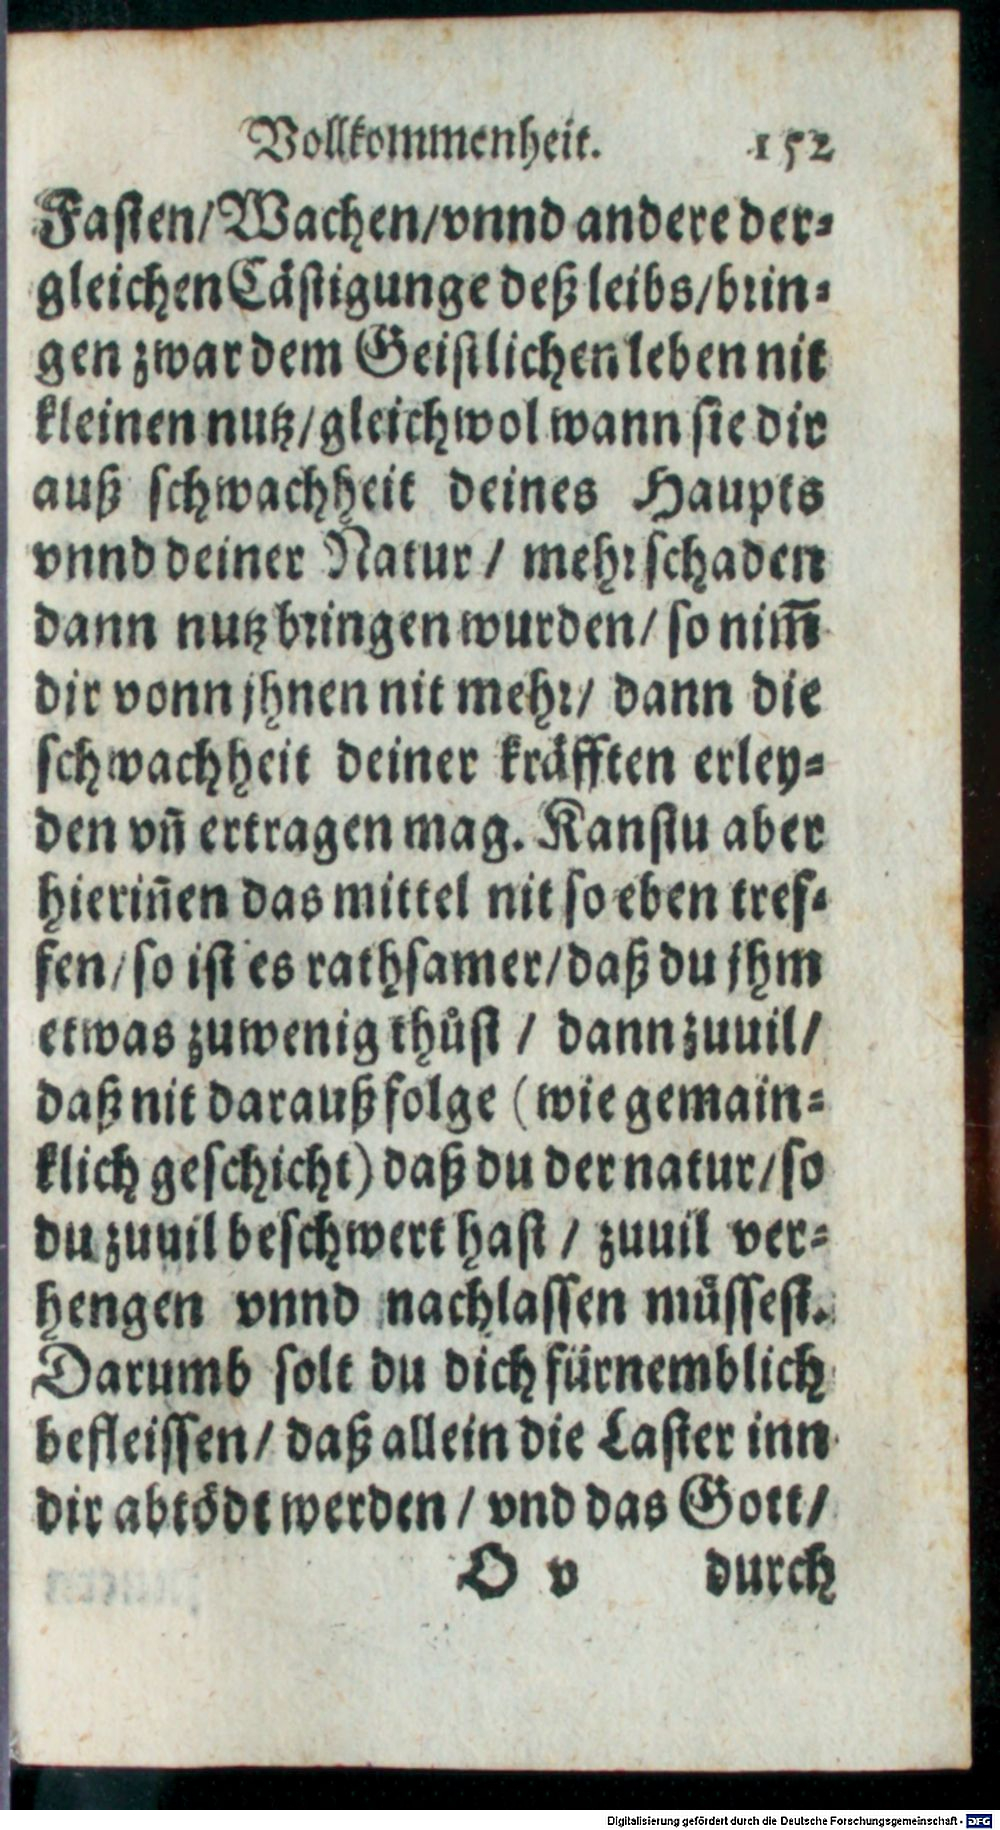 Vollkommenheit. 152
Fasten/Wachen/vnnd andere der-
gleichen Cästigunge deß leibs/brin-
gen zwar dem Geistlichen leben nit
kleinen nutz/gleichwol wann sie dir
auß schwachheit deines Haupts
vnnd deiner Natur / mehr schaden
dann nutz bringen wurden/ so nim̃
dir vonn jhnen nit mehr/ dann die
schwachheit deiner kräfften erley-
den vñ ertragen mag. Kanstu aber
hieriñen das mittel nit so eben tref-
fen/so ist es rathsamer/daß du jhm
etwas zuwenig thůst / dann zuuil/
daß nit darauß folge (wie gemain-
klich geschicht) daß du der natur/so
du zuuil beschwert hast / zuuil ver-
hengen vnnd nachlassen můssest.
Darumb solt du dich fürnemblich
befleissen/ daß allein die Laster inn
dir abtödt werden / vnd das Gott/
O v durch
Digitalisierung gefördert durch die Deutsche Forschungsgemeinschaft - DFG